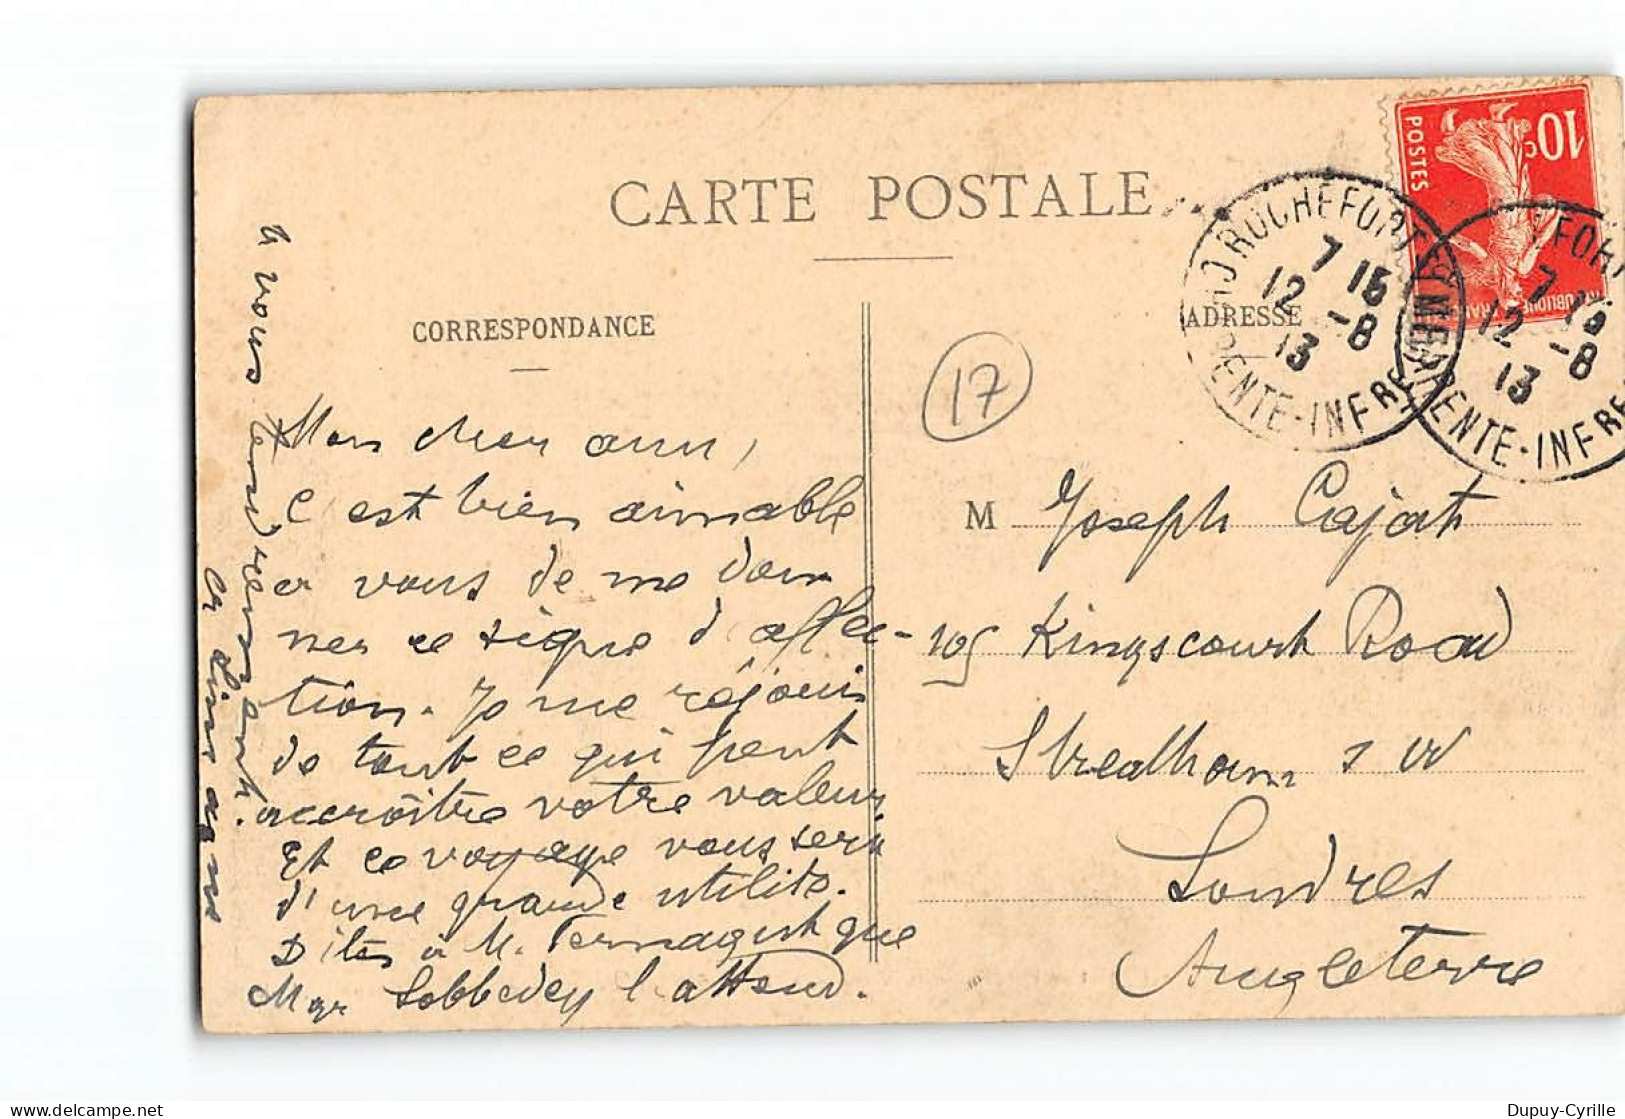 CARTE POSTALE
CORRESPONDANCE
ADRESSE
10c
POSTES
ROCHEFORT S MER
7 15
12 -8
13
CHARENTE-INFRE
7 15
12 -8
13
RENTE-INFRE
17
Mon cher ami,
C'est bien aimable
à vous de me don
ner ce signe d'affec-
tion. Je me réjouis
de tout ce qui peut
accroître votre valeur
Et ce voyage vous sera
d'une grande utilité.
Dites à M. que
Mgr Lobbedey l'attend.
à vous tendrement.
M Joseph Cajat
105 Kingscourt Road
Streatham S W
Londres
Angleterre
Dupuy-Cyrille